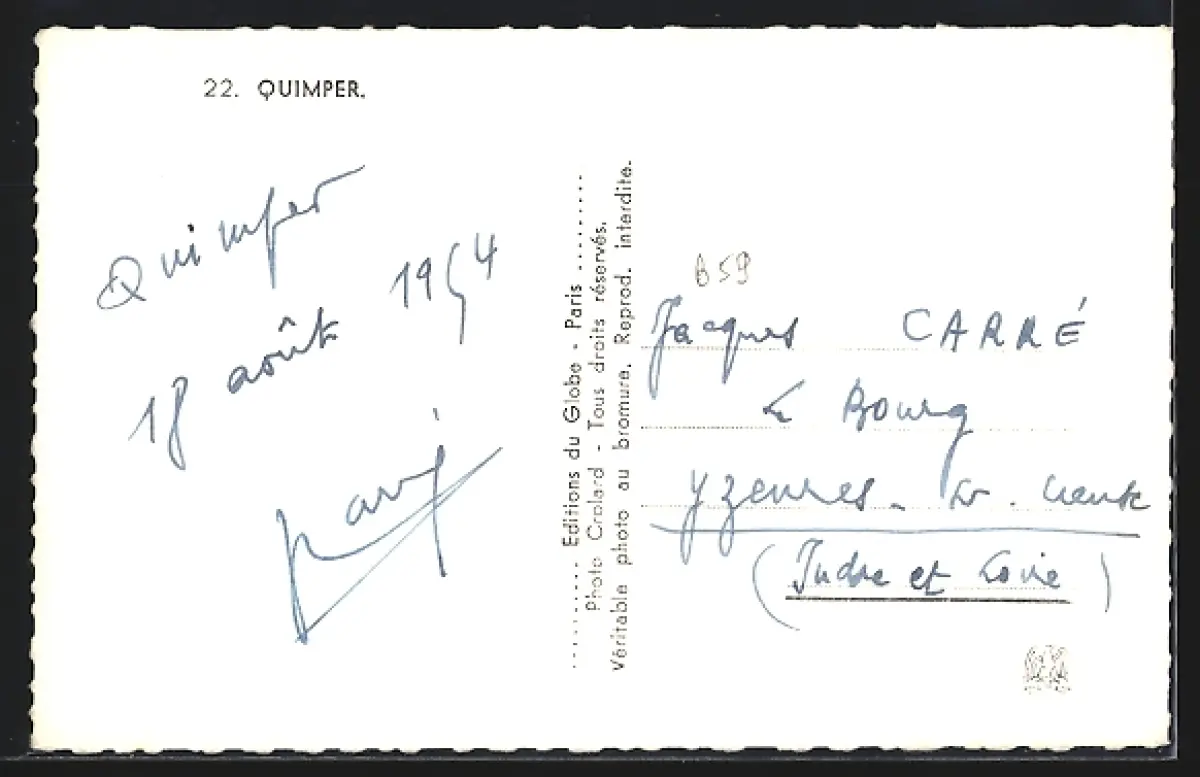 22. QUIMPER.
Quimper
18 août 1954
Editions du Globe - Paris
Photo Crolard - Tous droits réservés.
Véritable photo au bromure. Reprod. interdite.
B59
Jacques CARRÉ
Le Bourg
Yzeures
(Indre et Loire)